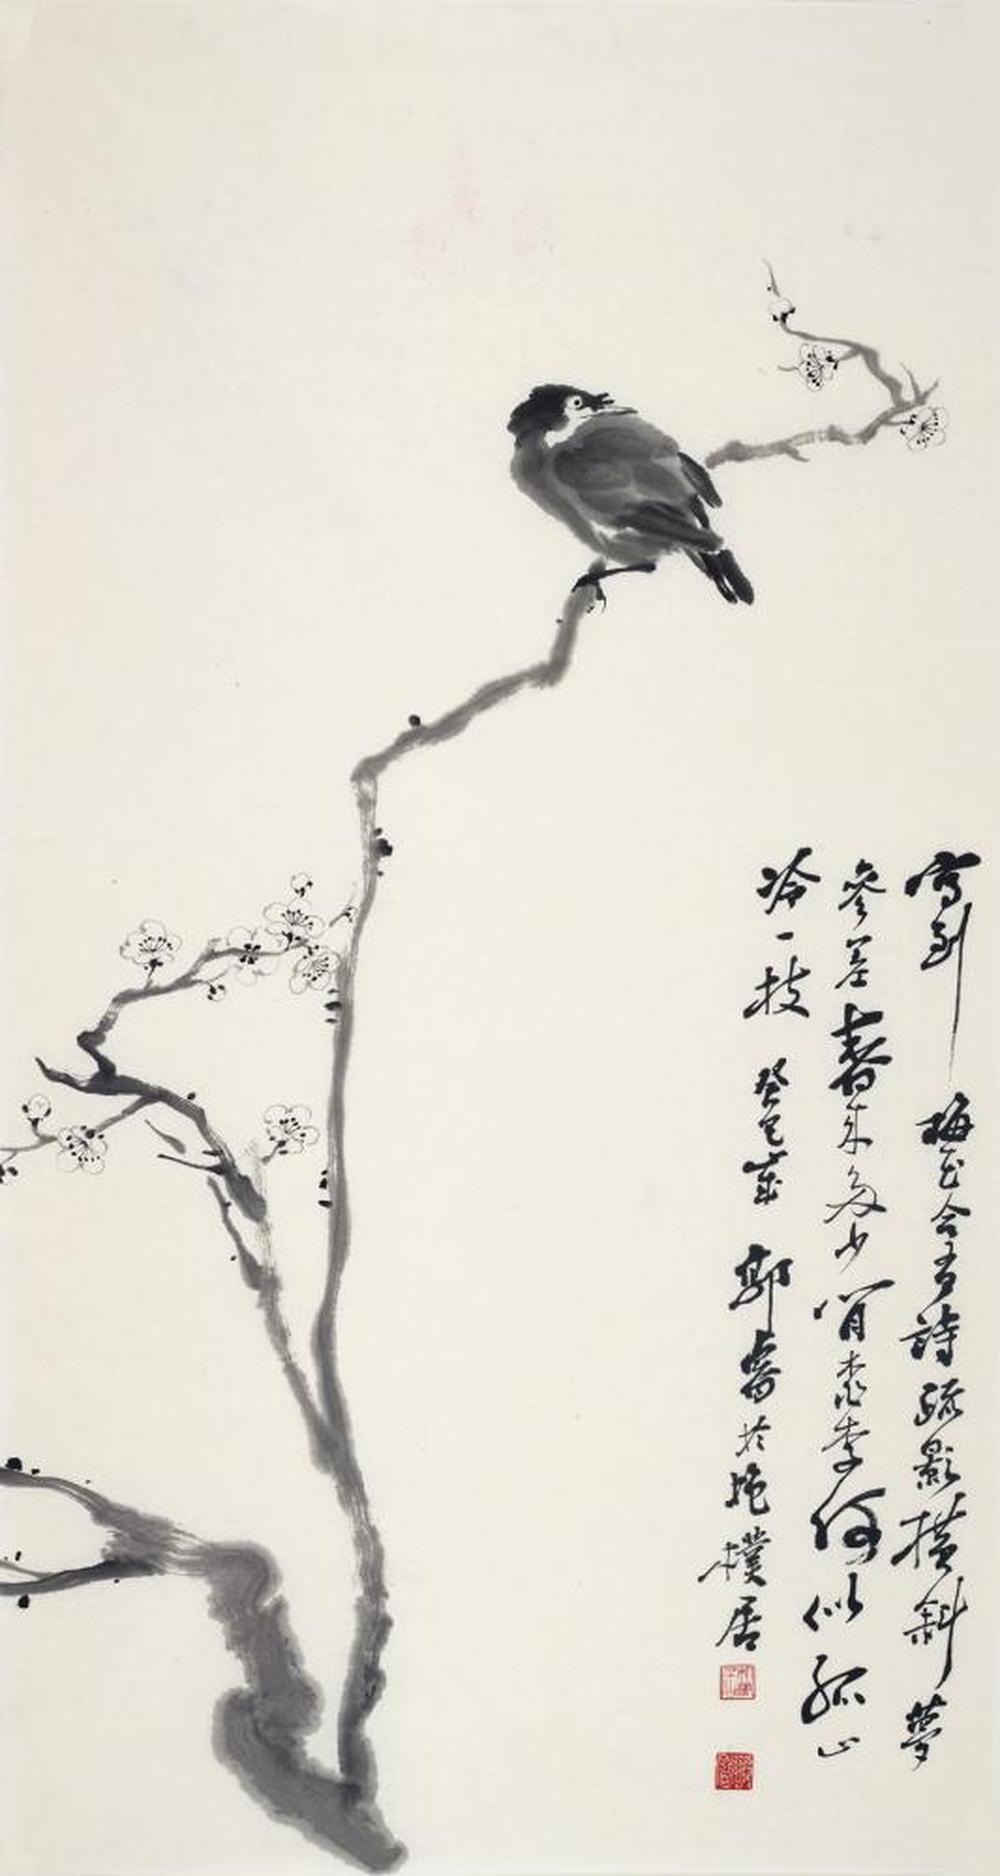 寫到梅花合有詩疏影橫斜夢
參差春來多少閒桃李何似孤山
冷一枝 癸巳歲 郭 於 樸居